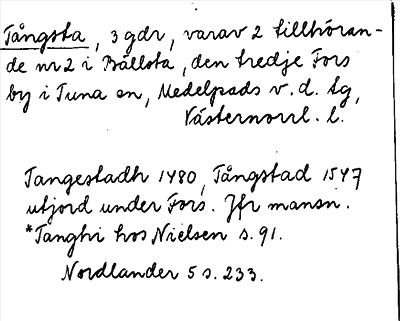 Tångsta, 3 gdr, varav 2 tillhöran-
de nr 2 i Bällsta, den tredje Fors
by i Tuna sn, Medelpads v. d. tg,
Västernorrl. l.
Tangestadh 1480, Tångstad 1547
utjord under Fors. Jfr mansn.
*Tanghi hos Nielsen s. 91.
Nordlander 5 s. 233.